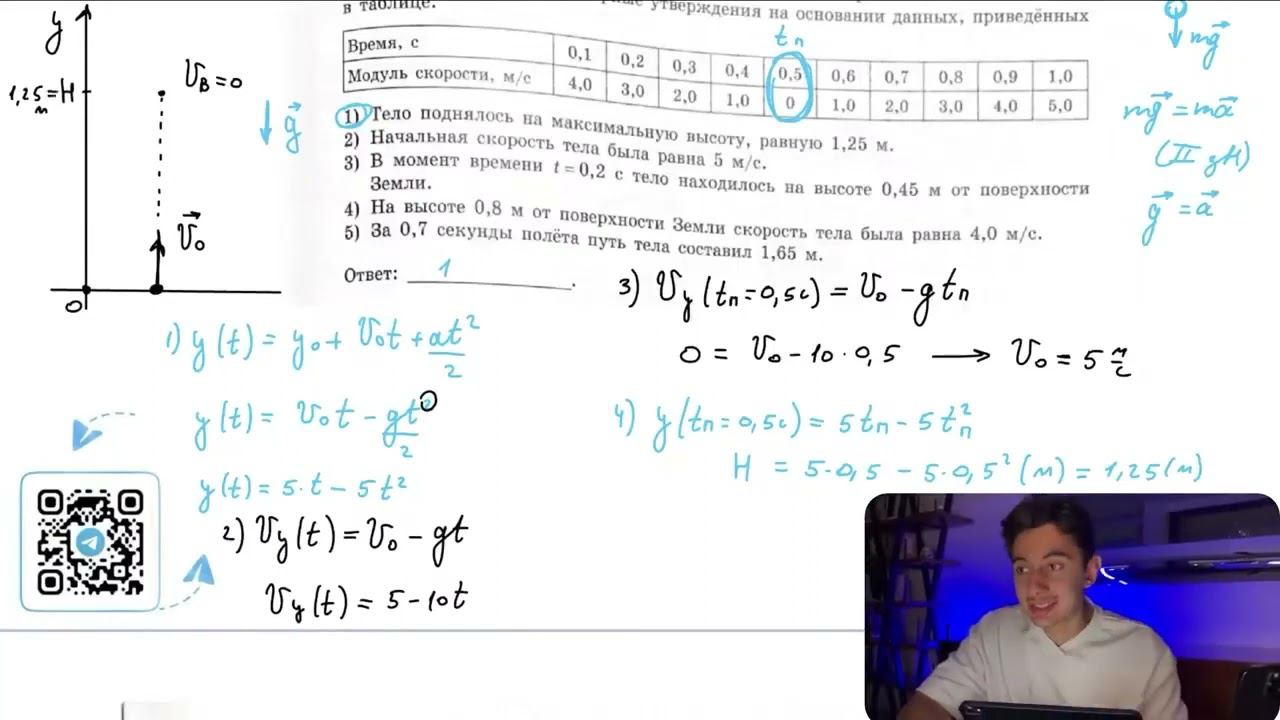 в таблице.
утверждения на основании данных, приведённых
tп
Время, с 0,1 0,2 0,3 0,4 0,5 0,6 0,7 0,8 0,9 1,0
Модуль скорости, м/с 4,0 3,0 2,0 1,0 0 1,0 2,0 3,0 4,0 5,0
1) Тело поднялось на максимальную высоту, равную 1,25 м.
2) Начальная скорость тела была равна 5 м/с.
3) В момент времени t = 0,2 с тело находилось на высоте 0,45 м от поверхности
Земли.
4) На высоте 0,8 м от поверхности Земли скорость тела была равна 4,0 м/с.
5) За 0,7 секунды полёта путь тела составил 1,65 м.
Ответ: 1.
y
1,25 м = H
υв = 0
g⃗
υ⃗₀
0
mg⃗
mg⃗ = ma⃗
(II зН)
g⃗ = a⃗
1) y(t) = y₀ + υ₀t + at²/2
y(t) = υ₀t − gt²/2
y(t) = 5·t − 5t²
2) υy(t) = υ₀ − gt
υy(t) = 5 − 10t
3) υy(tп = 0,5с) = υ₀ − gtп
0 = υ₀ − 10·0,5 ⟶ υ₀ = 5 м/с
4) y(tп = 0,5с) = 5tп − 5tп²
H = 5·0,5 − 5·0,5² (м) = 1,25 (м)